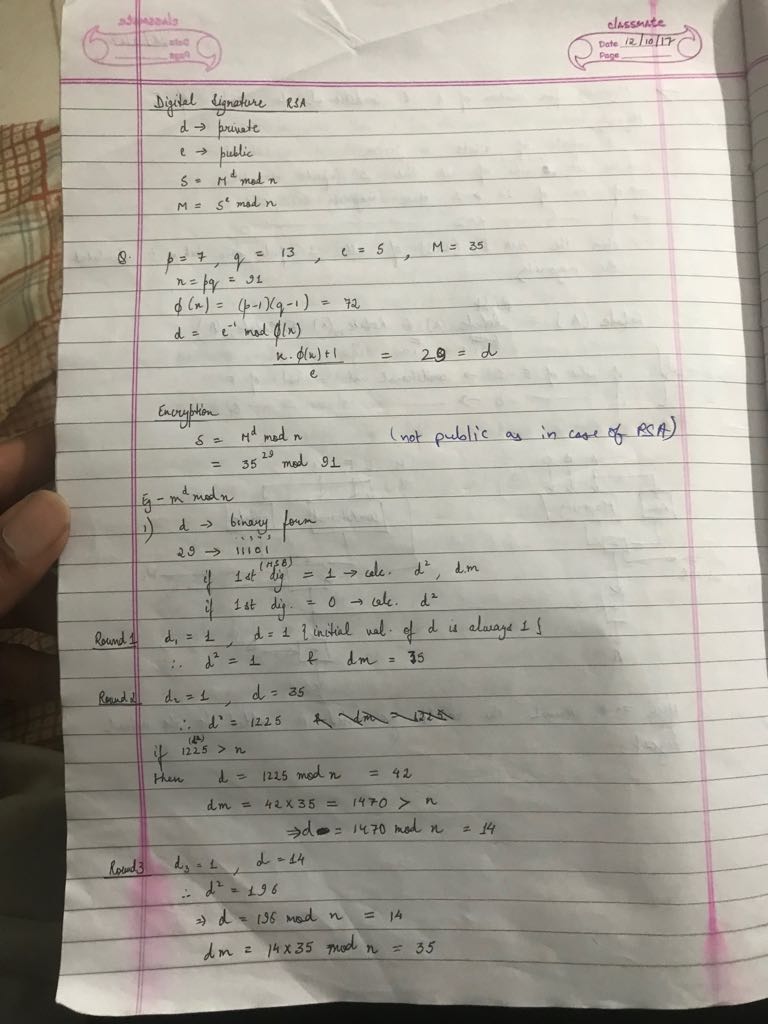 classmate
Date 12/10/17
Page
Digital Signature RSA
d → private
e → public
S = M^d mod n
M = S^e mod n
Q. p = 7, q = 13, e = 5, M = 35
n = pq = 91
ϕ(n) = (p-1)(q-1) = 72
d = e^-1 mod ϕ(n)
x.ϕ(n)+1 = 29 = d
e
Encryption
S = M^d mod n (not public as in case of RSA)
= 35^29 mod 91
Eg - m^d mod n
1) d → binary form
29 → 11101
(MSB)
if 1st dig = 1 → calc. d², d.m
if 1st dig. = 0 → calc. d²
Round 1 d₁ = 1, d = 1 {initial val. of d is always 1}
∴ d² = 1 & dm = 35
Round 2 d₂ = 1, d = 35
∴ d² = 1225 & dm = 1225
(d²)
if 1225 > n
then d = 1225 mod n = 42
dm = 42 x 35 = 1470 > n
⇒ d = 1470 mod n = 14
Round 3 d₃ = 1, d = 14
∴ d² = 196
⇒ d = 196 mod n = 14
dm = 14 x 35 mod n = 35